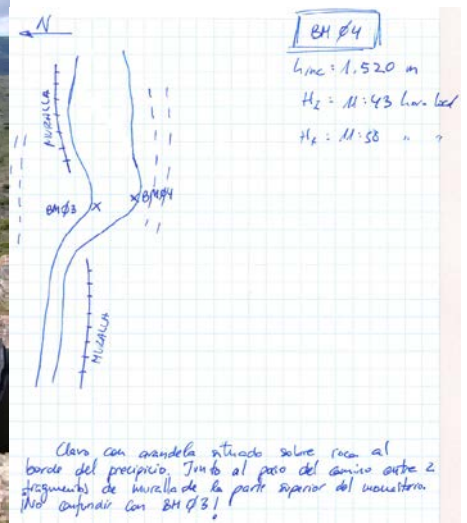 N
BM Ø4
hinc: 1.520 m
HI = 11:43 hora local
HF = 11:58 " "
MURALLA
BMØ3
BMØ4
MURALLA
Clavo con arandela situado sobre roca al
borde del precipicio. Junto al paso del camino entre 2
fragmentos de muralla de la parte superior del monasterio.
¡No confundir con BM Ø3!